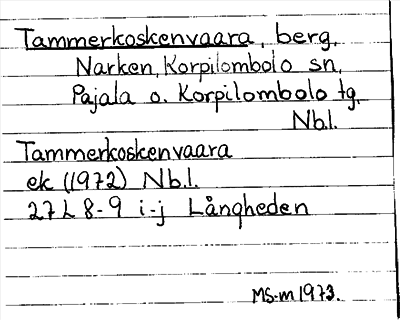 Tammerkoskenvaara, berg,
Narken, Korpilombolo sn,
Pajala o. Korpilombolo tg,
Nbl.
Tammerkoskenvaara
ek (1972) Nb.l.
27 L 8-9 i-j Långheden
MS-m 1973.